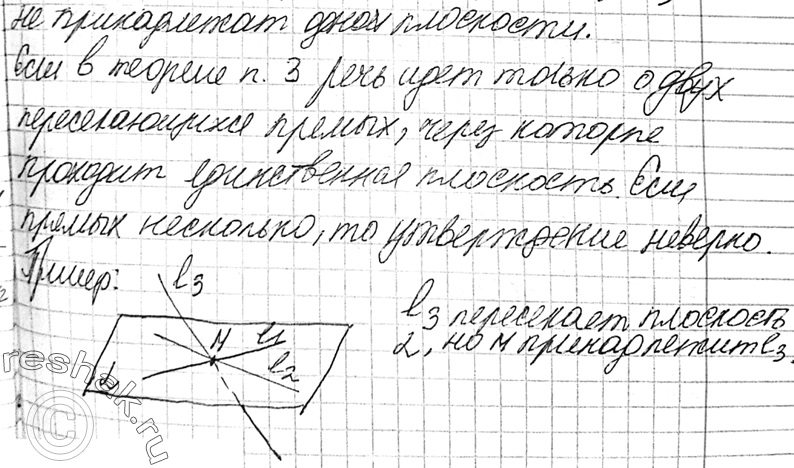 не принадлежат одной плоскости.
Если в теореме п. 3 речь идет только о двух
пересекающихся прямых, через которые
проходит единственная плоскость. Если
прямых несколько, то утверждение неверно.
Пример:
l3
M
l1
l2
α
l3 пересекает плоскость
α, но M принадлежит l3.
reshak.ru
©